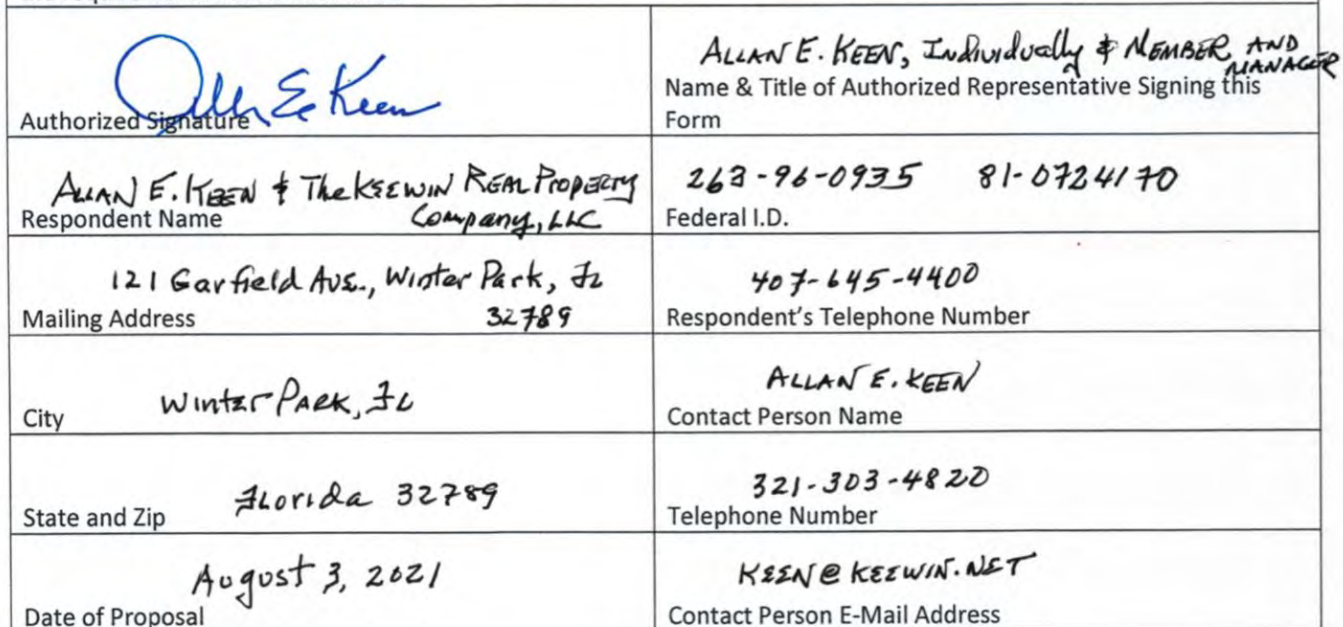 ALLAN E. KEEN, Individually & MEMBER AND MANAGER
Allan E Keen
Authorized Signature
Name & Title of Authorized Representative Signing this
Form
ALLAN E. KEEN & The KEEWIN REAL PROPERTY
Company, LLC
Respondent Name
263-96-0935 81-0724170
Federal I.D.
121 Garfield Ave., Winter Park, FL
32789
Mailing Address
407-645-4400
Respondent's Telephone Number
Winter PARK, FL
City
ALLAN E. KEEN
Contact Person Name
Florida 32789
State and Zip
321-303-4820
Telephone Number
August 3, 2021
Date of Proposal
KEEN@KEEWIN.NET
Contact Person E-Mail Address